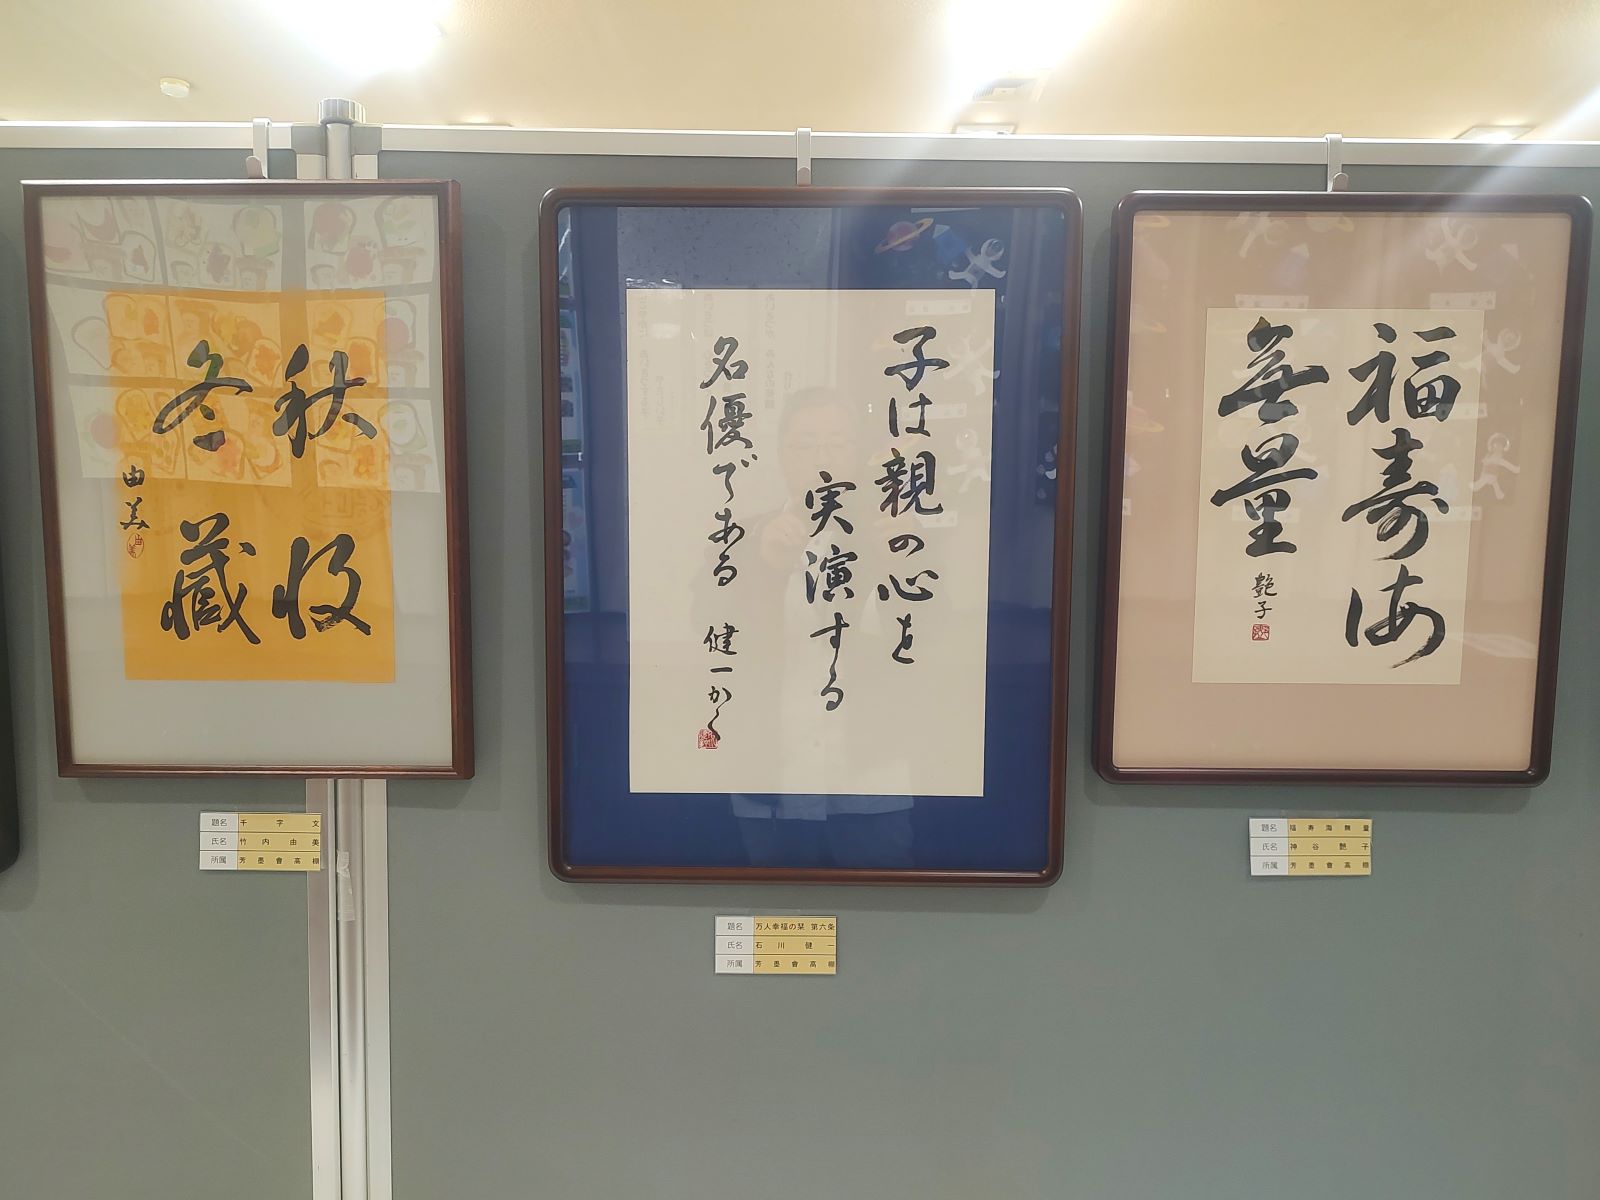 秋収
冬蔵
由美
題名 千字文
氏名 竹内由美
所属 芳墨會高棚
子は親の心を
実演する
名優である
健一かく
題名 万人幸福の栞 第六条
氏名 石川健一
所属 芳墨會高棚
福寿海
無量
艶子
題名 福寿海無量
氏名 神谷艶子
所属 芳墨會高棚